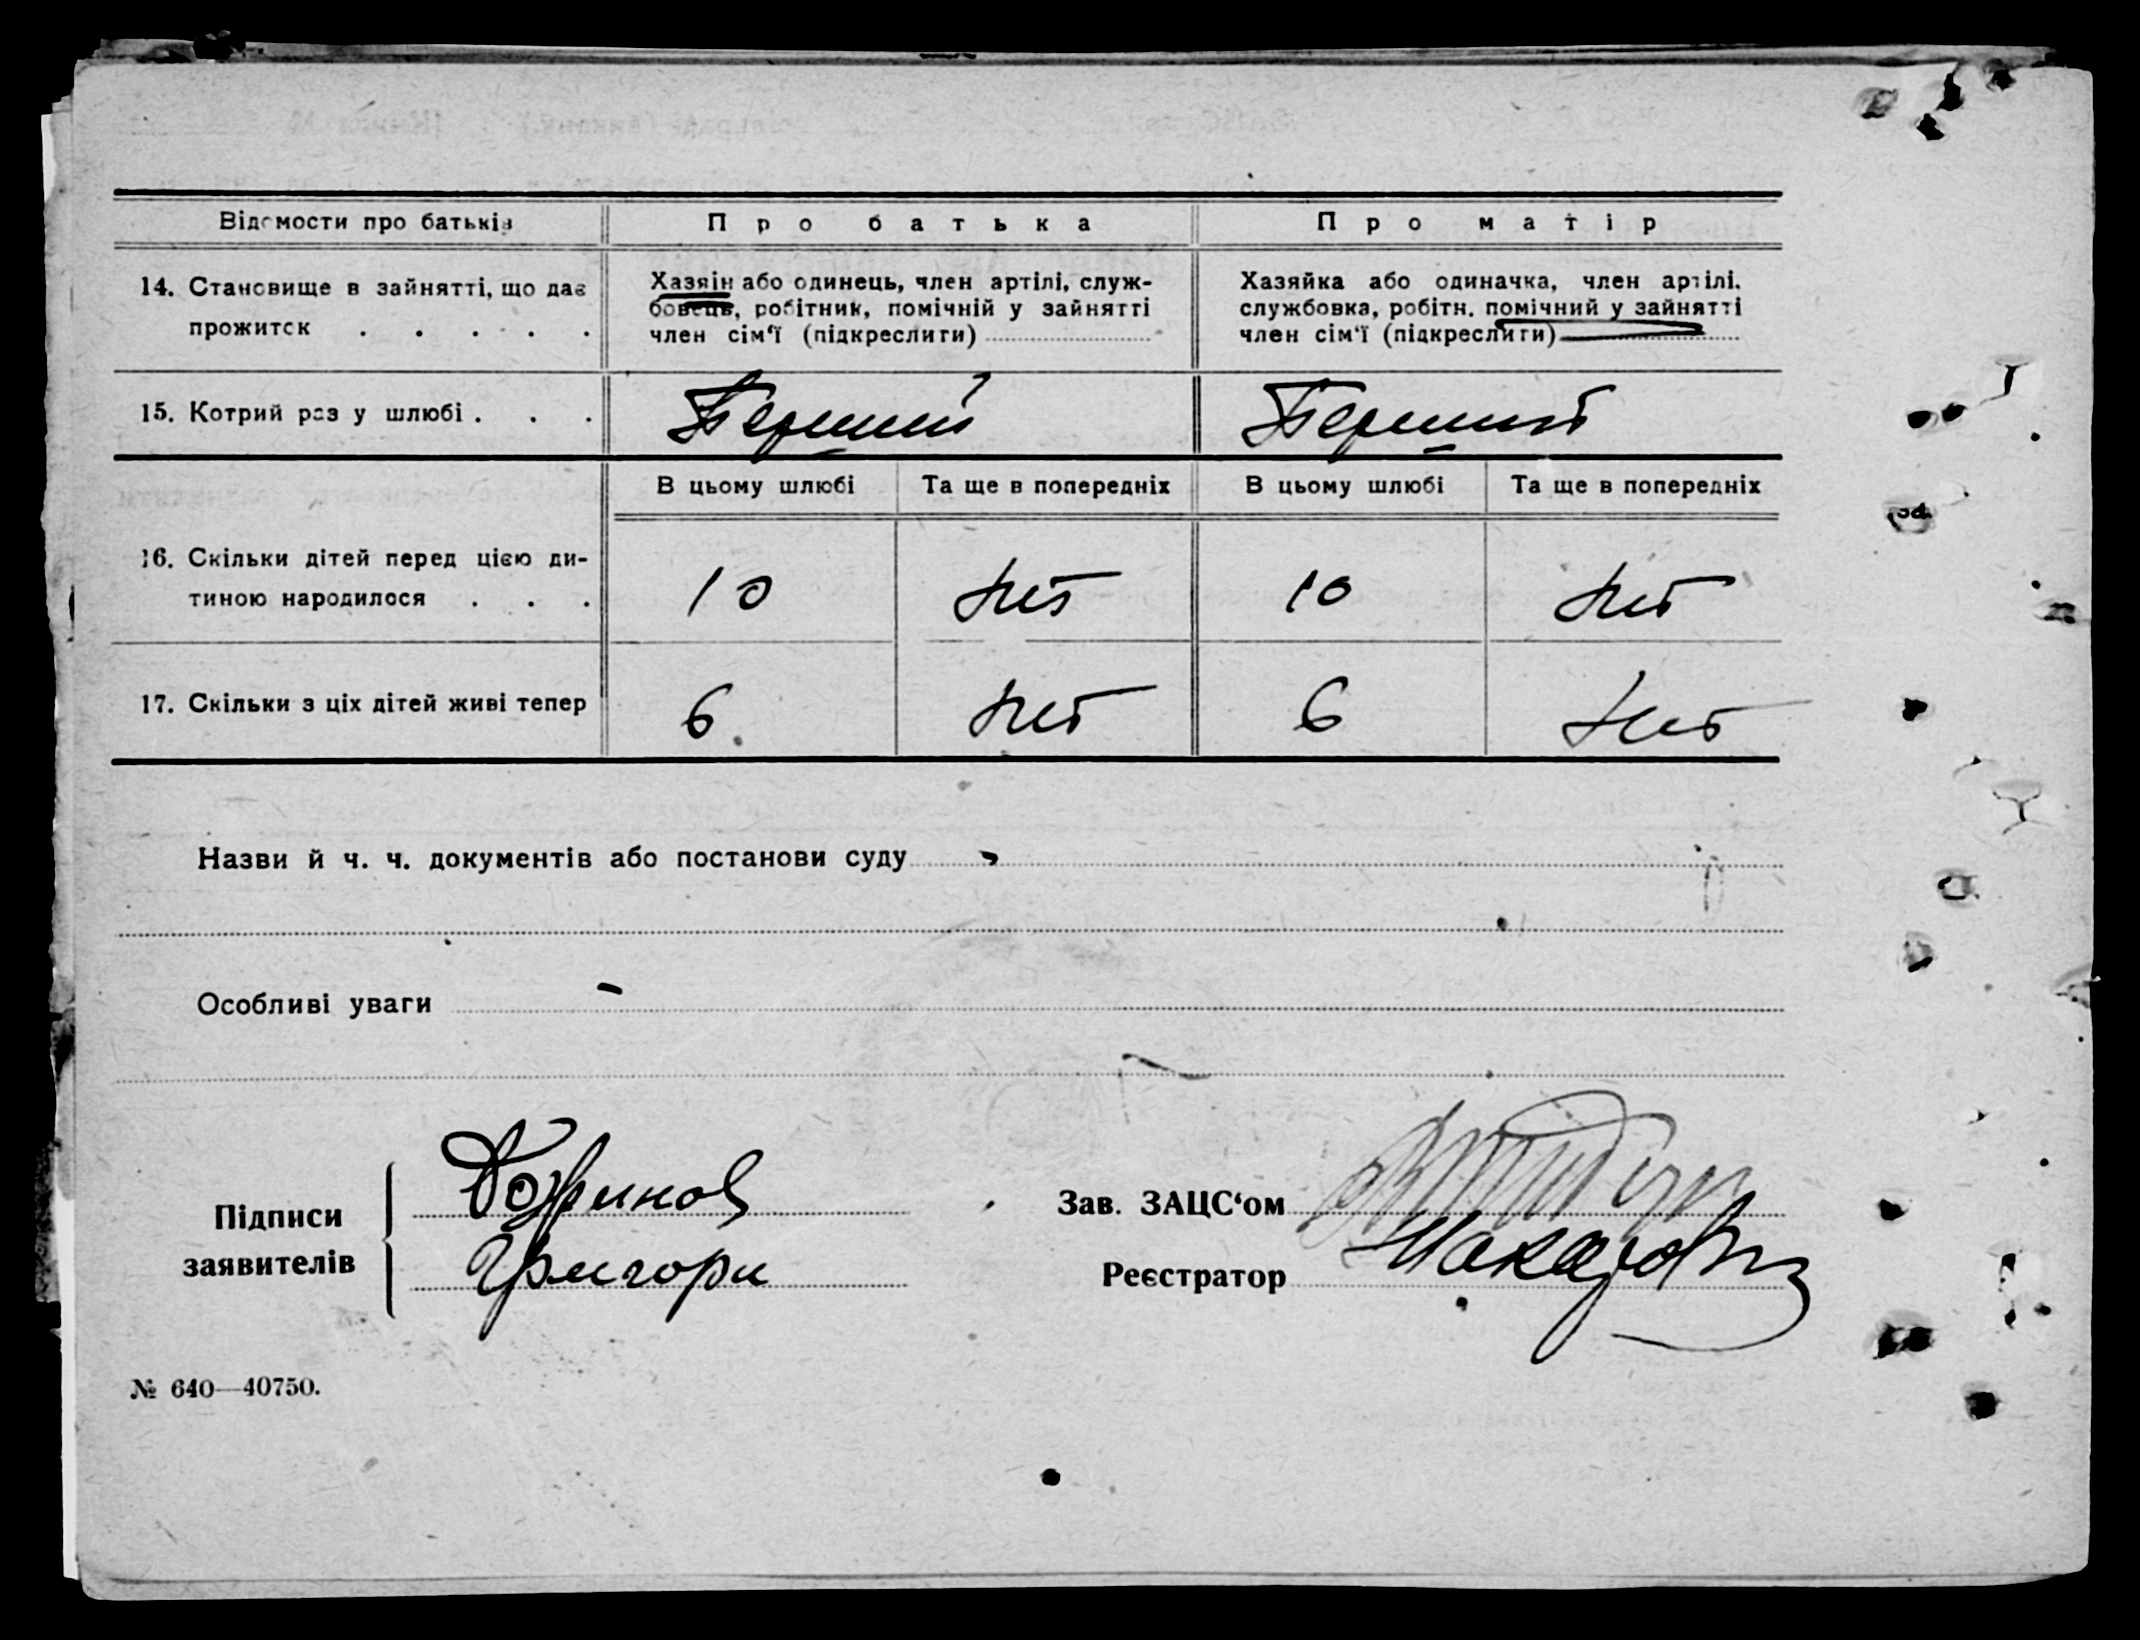 Відомости про батьків
Про батька
Про матір
14. Становище в зайнятті, що дає
прожиток . . . . .
Хазяїн або одинець, член артілі, служ-
бовець, робітник, помічній у зайнятті
член сім‘ї (підкреслити)
Хазяйка або одиначка, член артілі,
службовка, робітн. помічний у зайнятті
член сім‘ї (підкреслити)
15. Котрий раз у шлюбі . . .
Первий
Первий
В цьому шлюбі
Та ще в попередніх
В цьому шлюбі
Та ще в попередніх
16. Скільки дітей перед цією ди-
тиною народилося . . .
10
Нет
10
Нет
17. Скільки з ціх дітей живі тепер
6
Нет
6
Нет
Назви й ч. ч. документів або постанови суду
Особливі уваги
Підписи
заявителів
Григори
Зав. ЗАЦС‘ом
Реєстратор
№ 640—40750.